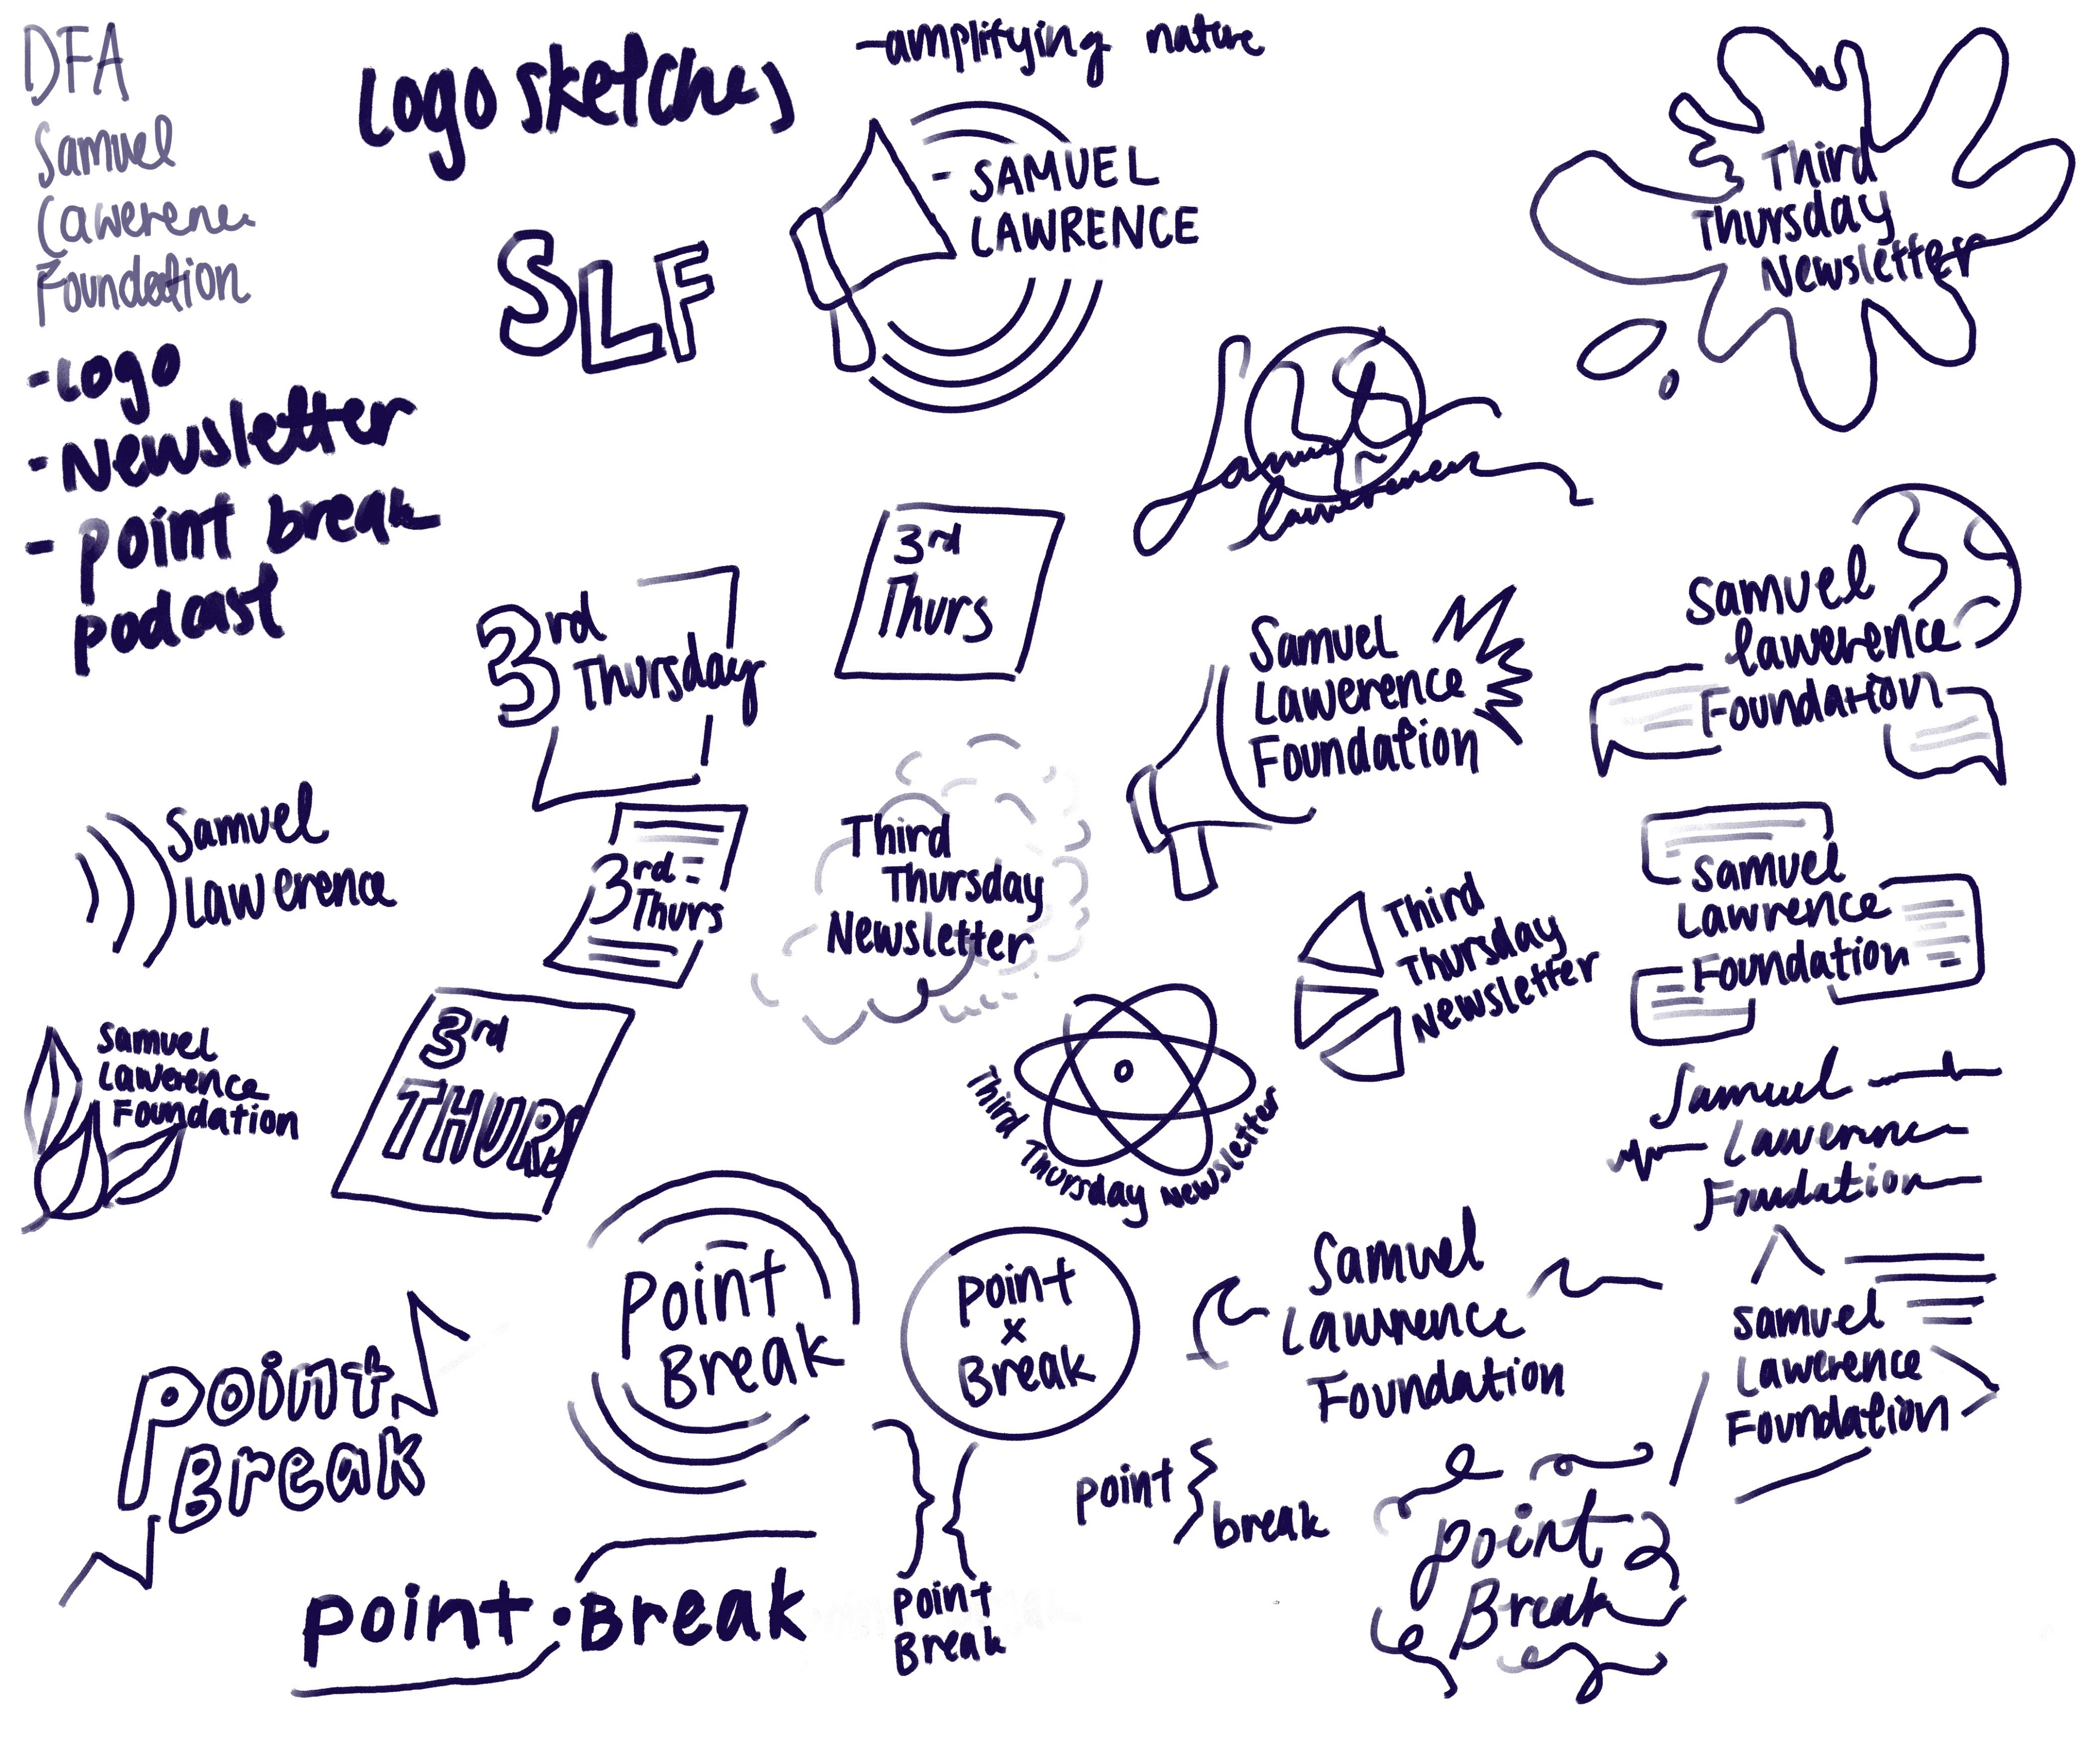 DFA
Samuel
Lawerence
Foundation
-Logo
-Newsletter
- point break
podcast
Logo sketches
-amplifying nature
- SAMUEL
LAWRENCE
SLF
Third
Thursday
Newsletter
Samuel
Lawrence
3rd
Thurs
3rd
Thursday
Samuel
Lawerence
Foundation
Samuel
Lawerence
Foundation
Samuel
Lawerence
3rd
Thurs
Third
Thursday
Newsletter
Third
Thursday
Newsletter
Samuel
Lawrence
Foundation
Samuel
Lawerence
Foundation
3rd
THURS
Third Thursday Newsletter
Samuel
Lawerence
Foundation
Point
Break
Point
x
Break
Samuel
Lawrence
Foundation
Samuel
Lawerence
Foundation
Point
Break
point
break
point
Break
Point · Break
Point
Break